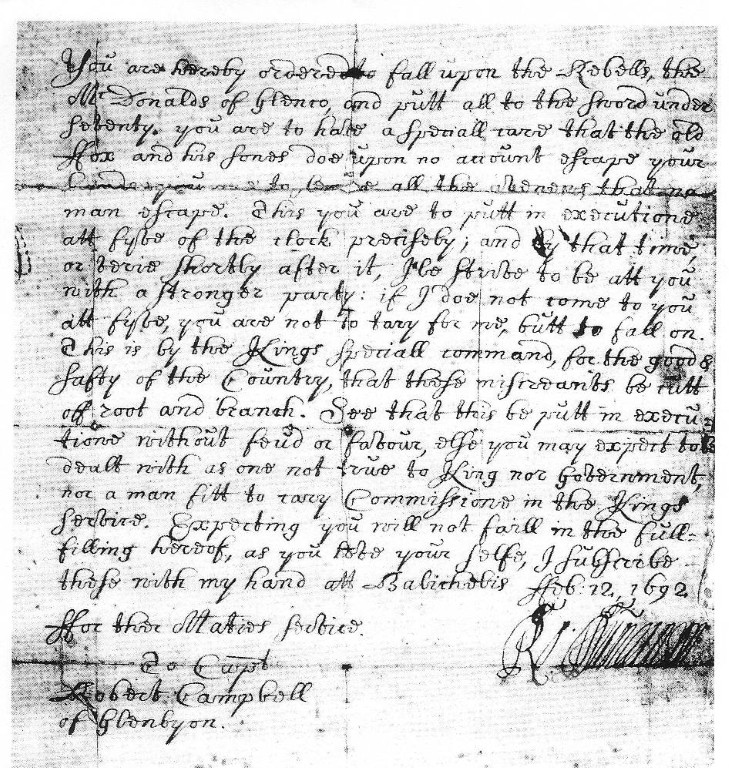 You are hereby ordered to fall upon the Rebells, the
McDonalds of Glenco, and putt all to the sword under
seventy. you are to have a speciall care that the old
ffox and his sones doe upon no account escape your
hands you are to secure all the avenues that no
man escape. This you are to putt in executione
att fyve of the clock precisely; and by that time,
or verie shortly after it, I'le strive to be att you
with a stronger party: if I doe not come to you
att fyve, you are not to tary for me, butt to fall on.
This is by the Kings speciall command, for the good &
safty of the Country, that these miscreants be cutt
off root and branch. See that this be putt in execu=
tione without feud or favour, else you may expect to be
dealt with as one not true to King nor Government,
nor a man fitt to cary Commissione in the Kings
service. Expecting you will not faill in the full=
filling hereof, as you love your selfe, I subscribe
these with my hand att Balicholis ffeb: 12, 1692
ffor ther Maties service
To Capt
Robert Campbell
of Glenlyon.